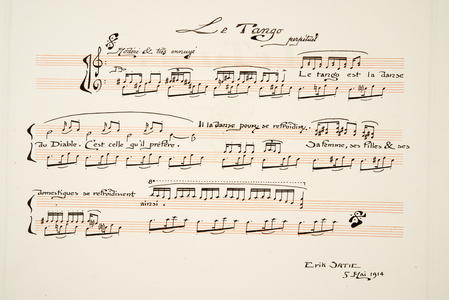 Le Tango
perpétuel
Modéré & très ennuyé
Le tango est la danse
du Diable. C'est celle qu'il préfère.
Il la danse pour se refroidir.
Sa femme, ses filles & ses
domestiques se refroidissent
ainsi.
Erik SATIE
5 Mai 1914